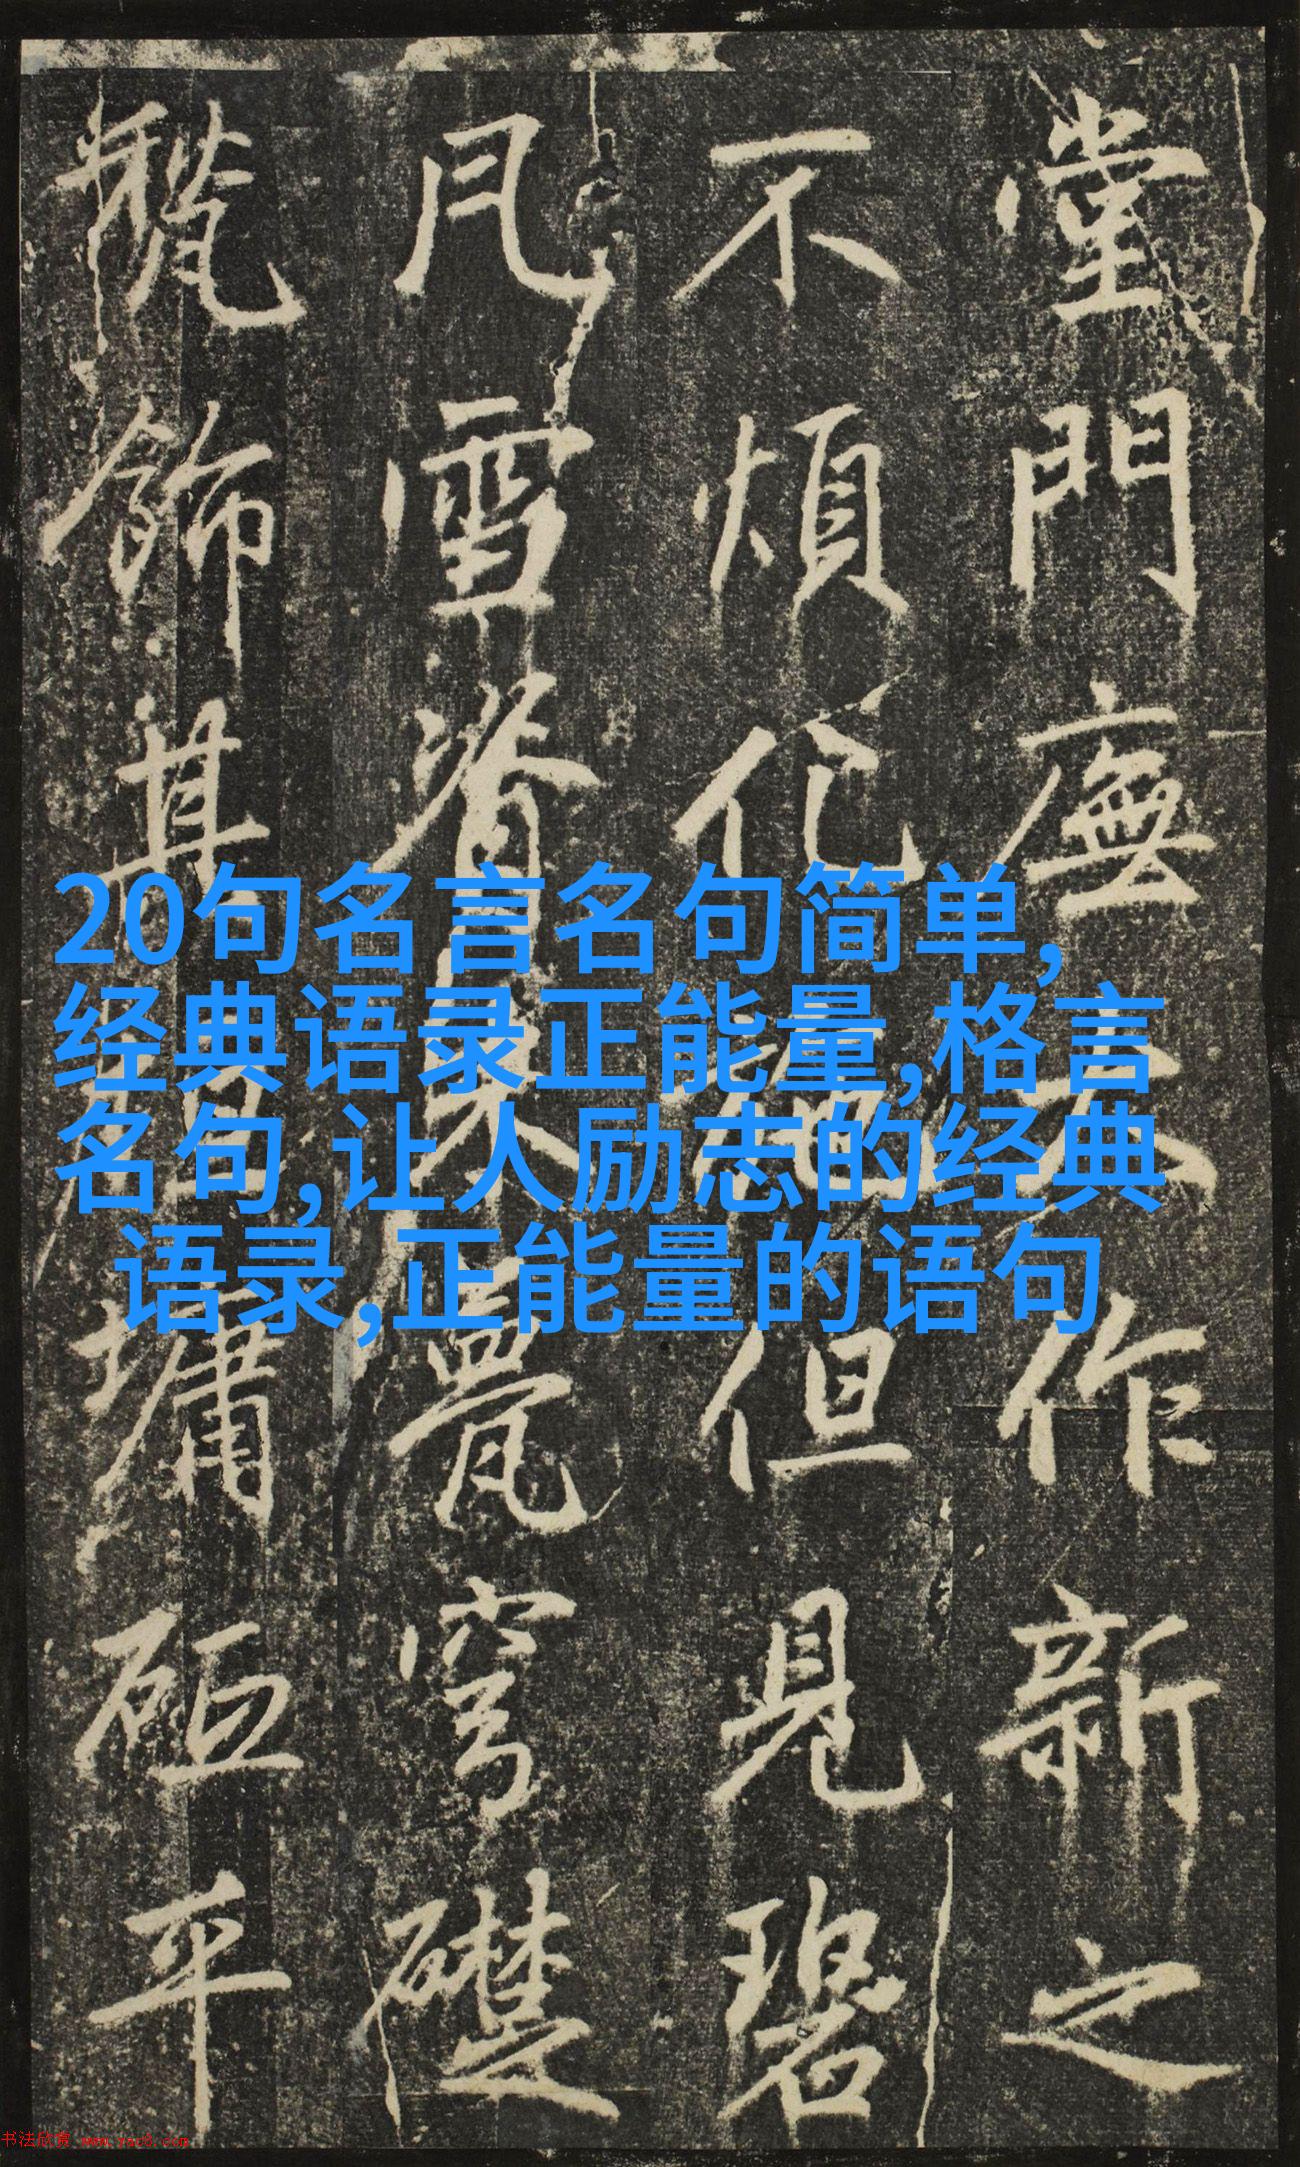 堂門廡大作新之
不煩化但見碧
凡雪脊甍穹礎
飾其墉砠平
20句名言名句简单,
经典语录正能量,格言
名句,让人励志的经典
语录,正能量的语句
书法欣赏 www.yac8.com